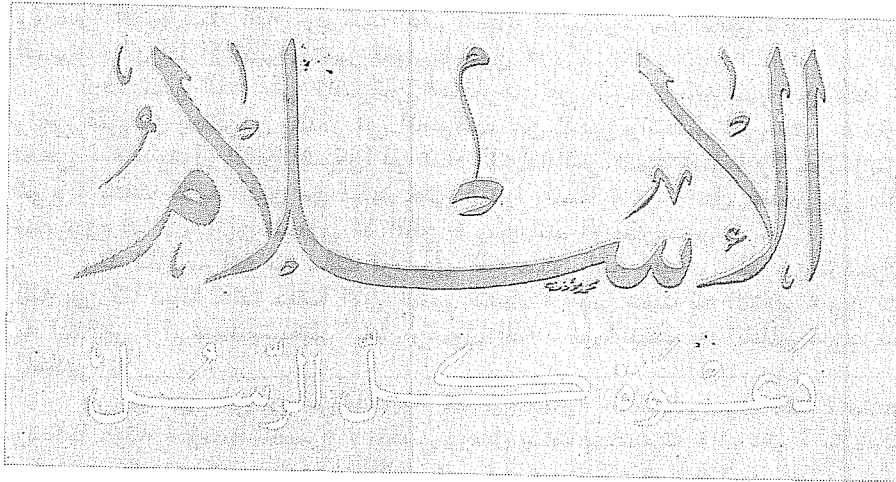 الإِسْلَامُ
دَعْوَةُ كُلِّ الرُّسُلِ